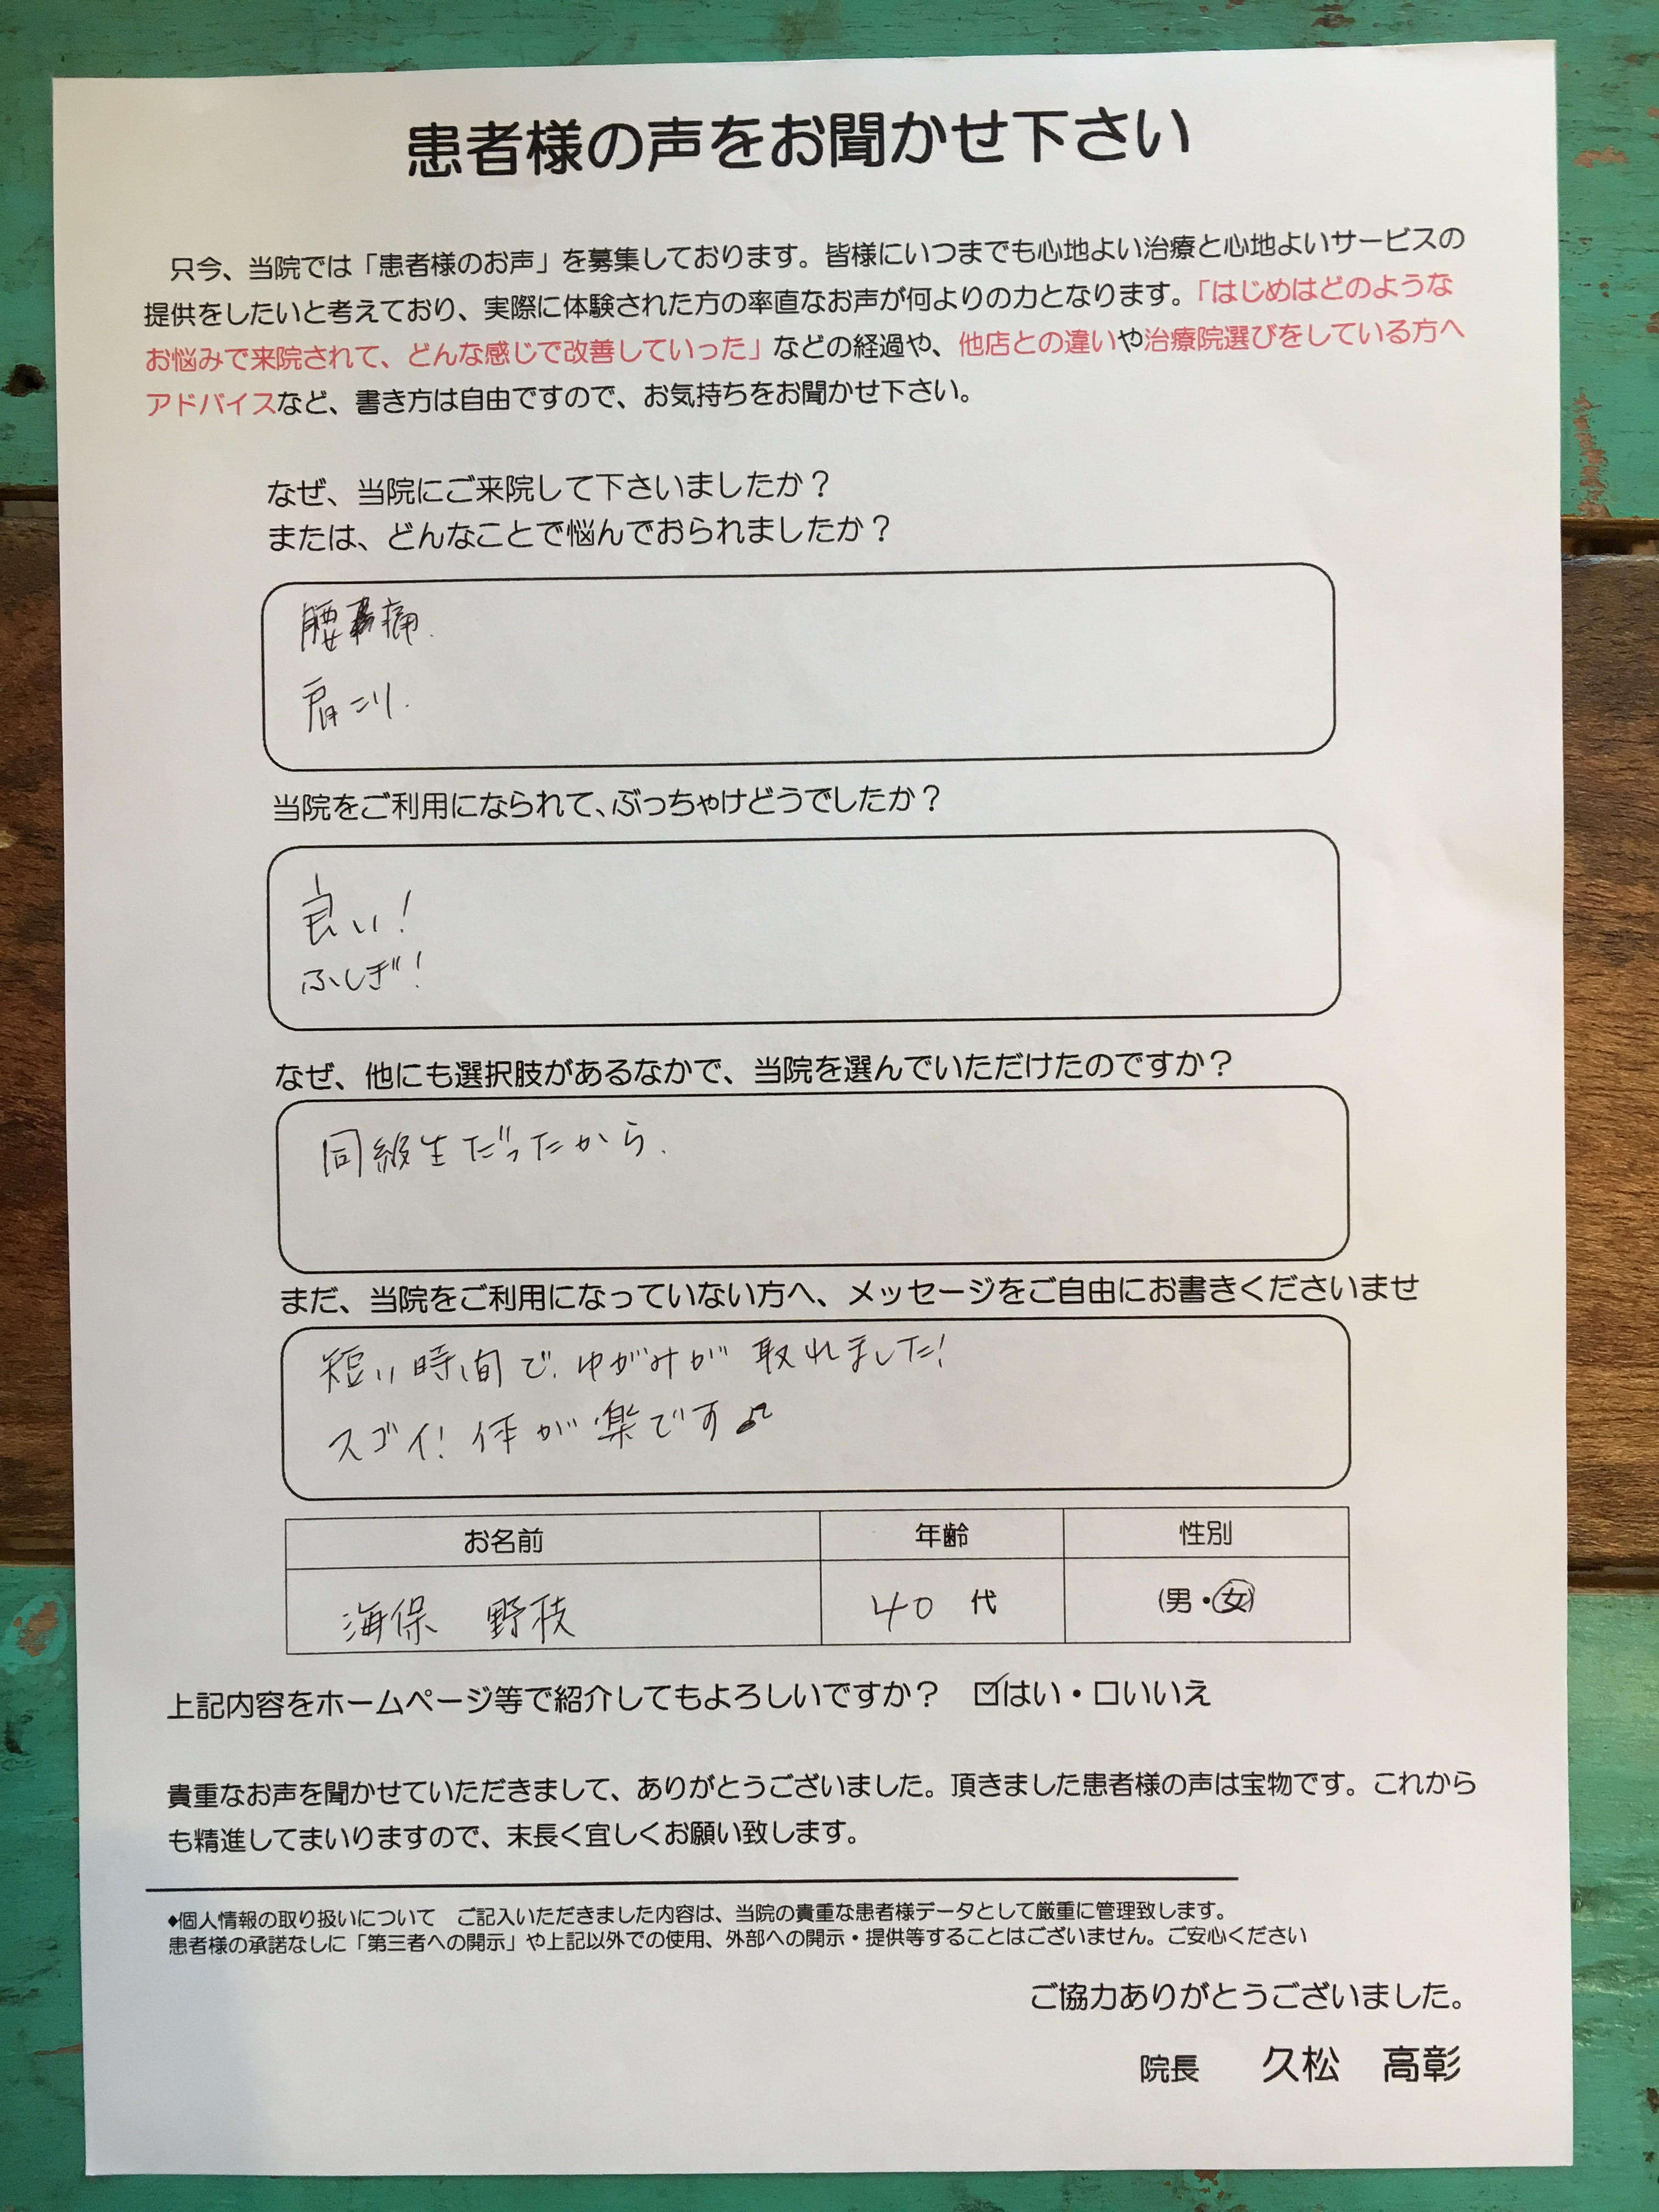 患者様の声をお聞かせ下さい
只今、当院では「患者様のお声」を募集しております。皆様にいつまでも心地よい治療と心地よいサービスの
提供をしたいと考えており、実際に体験された方の率直なお声が何よりの力となります。「はじめはどのような
お悩みで来院されて、どんな感じで改善していった」などの経過や、他店との違いや治療院選びをしている方へ
アドバイスなど、書き方は自由ですので、お気持ちをお聞かせ下さい。
なぜ、当院にご来院して下さいましたか？
または、どんなことで悩んでおられましたか？
腰痛.
肩こり.
当院をご利用になられて、ぶっちゃけどうでしたか？
良い！
ふしぎ！
なぜ、他にも選択肢があるなかで、当院を選んでいただけたのですか？
同級生だったから.
まだ、当院をご利用になっていない方へ、メッセージをご自由にお書きくださいませ
短い時間で.ゆがみが取れました!
スゴイ!体が楽です♪
お名前 年齢 性別
海保 野枝 40 代 (男・女)
上記内容をホームページ等で紹介してもよろしいですか？ ☑はい・□いいえ
貴重なお声を聞かせていただきまして、ありがとうございました。頂きました患者様の声は宝物です。これから
も精進してまいりますので、末長く宜しくお願い致します。
◆個人情報の取り扱いについて ご記入いただきました内容は、当院の貴重な患者様データとして厳重に管理致します。
患者様の承諾なしに「第三者への開示」や上記以外での使用、外部への開示・提供等することはございません。ご安心ください
ご協力ありがとうございました。
院長 久松 高彰